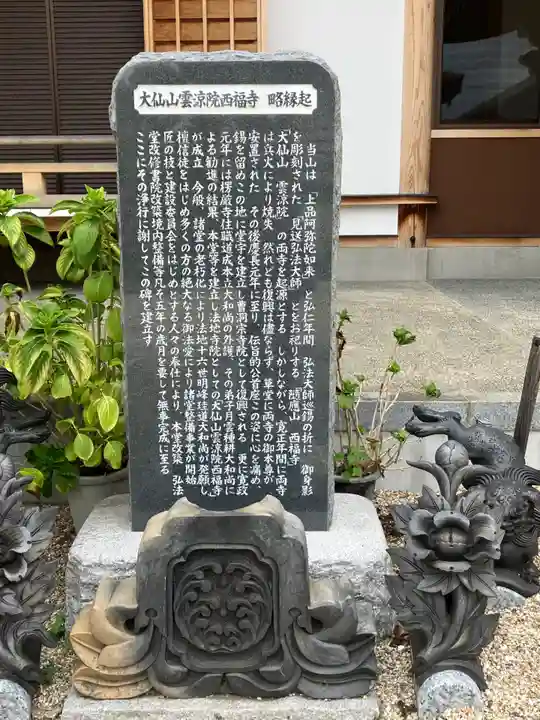 大仙山雲涼院西福寺 略縁起
当山は、「上品阿弥陀如来」と弘仁年間、弘法大師巡錫の折に、御身影
を彫刻された「見送弘法大師」とをお祀りする「随應山 西福寺」
「大仙山 雲涼院」の両寺を起源とする。しかしながら、寛正年間、両寺
は兵火により焼失。然れども復興は儘ならず、草堂に両寺の御本尊が
安置された。その後慶長元年に至り、伝旨的公首座この姿に心を痛め、
錫を留めこの地に堂宇を建立し曹洞宗寺院として復興される。更に寛政
元年には楞厳寺住職道成本立大和尚の外護、その弟子月雲種耕大和尚に
よる勧進の結果、本堂等を建立し法地寺院としての大仙山雲涼院西福寺
が成立。今般、諸堂の老朽化により法地十六世明峰珪運大和尚が発願し、
檀信徒をはじめ多くの方の絶大なる御法愛により諸堂整備事業が開始
匠の技と建設委員会をはじめとする人々の奉仕により、本堂改築、弘法
堂改修書院改築境内整備等凡そ五年の歳月を要して無事完成に至る。
ここにその浄行に謝してこの碑を建立す